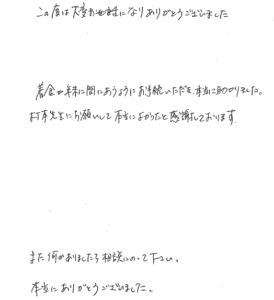 この度は大変お世話になりありがとうございました
着金が年末に間にあうようにお手続いただき、本当に助かりました。
村本先生にお願いして本当によかったと感謝しております
また何かありましたら相談にのって下さい。
本当にありがとうございました。